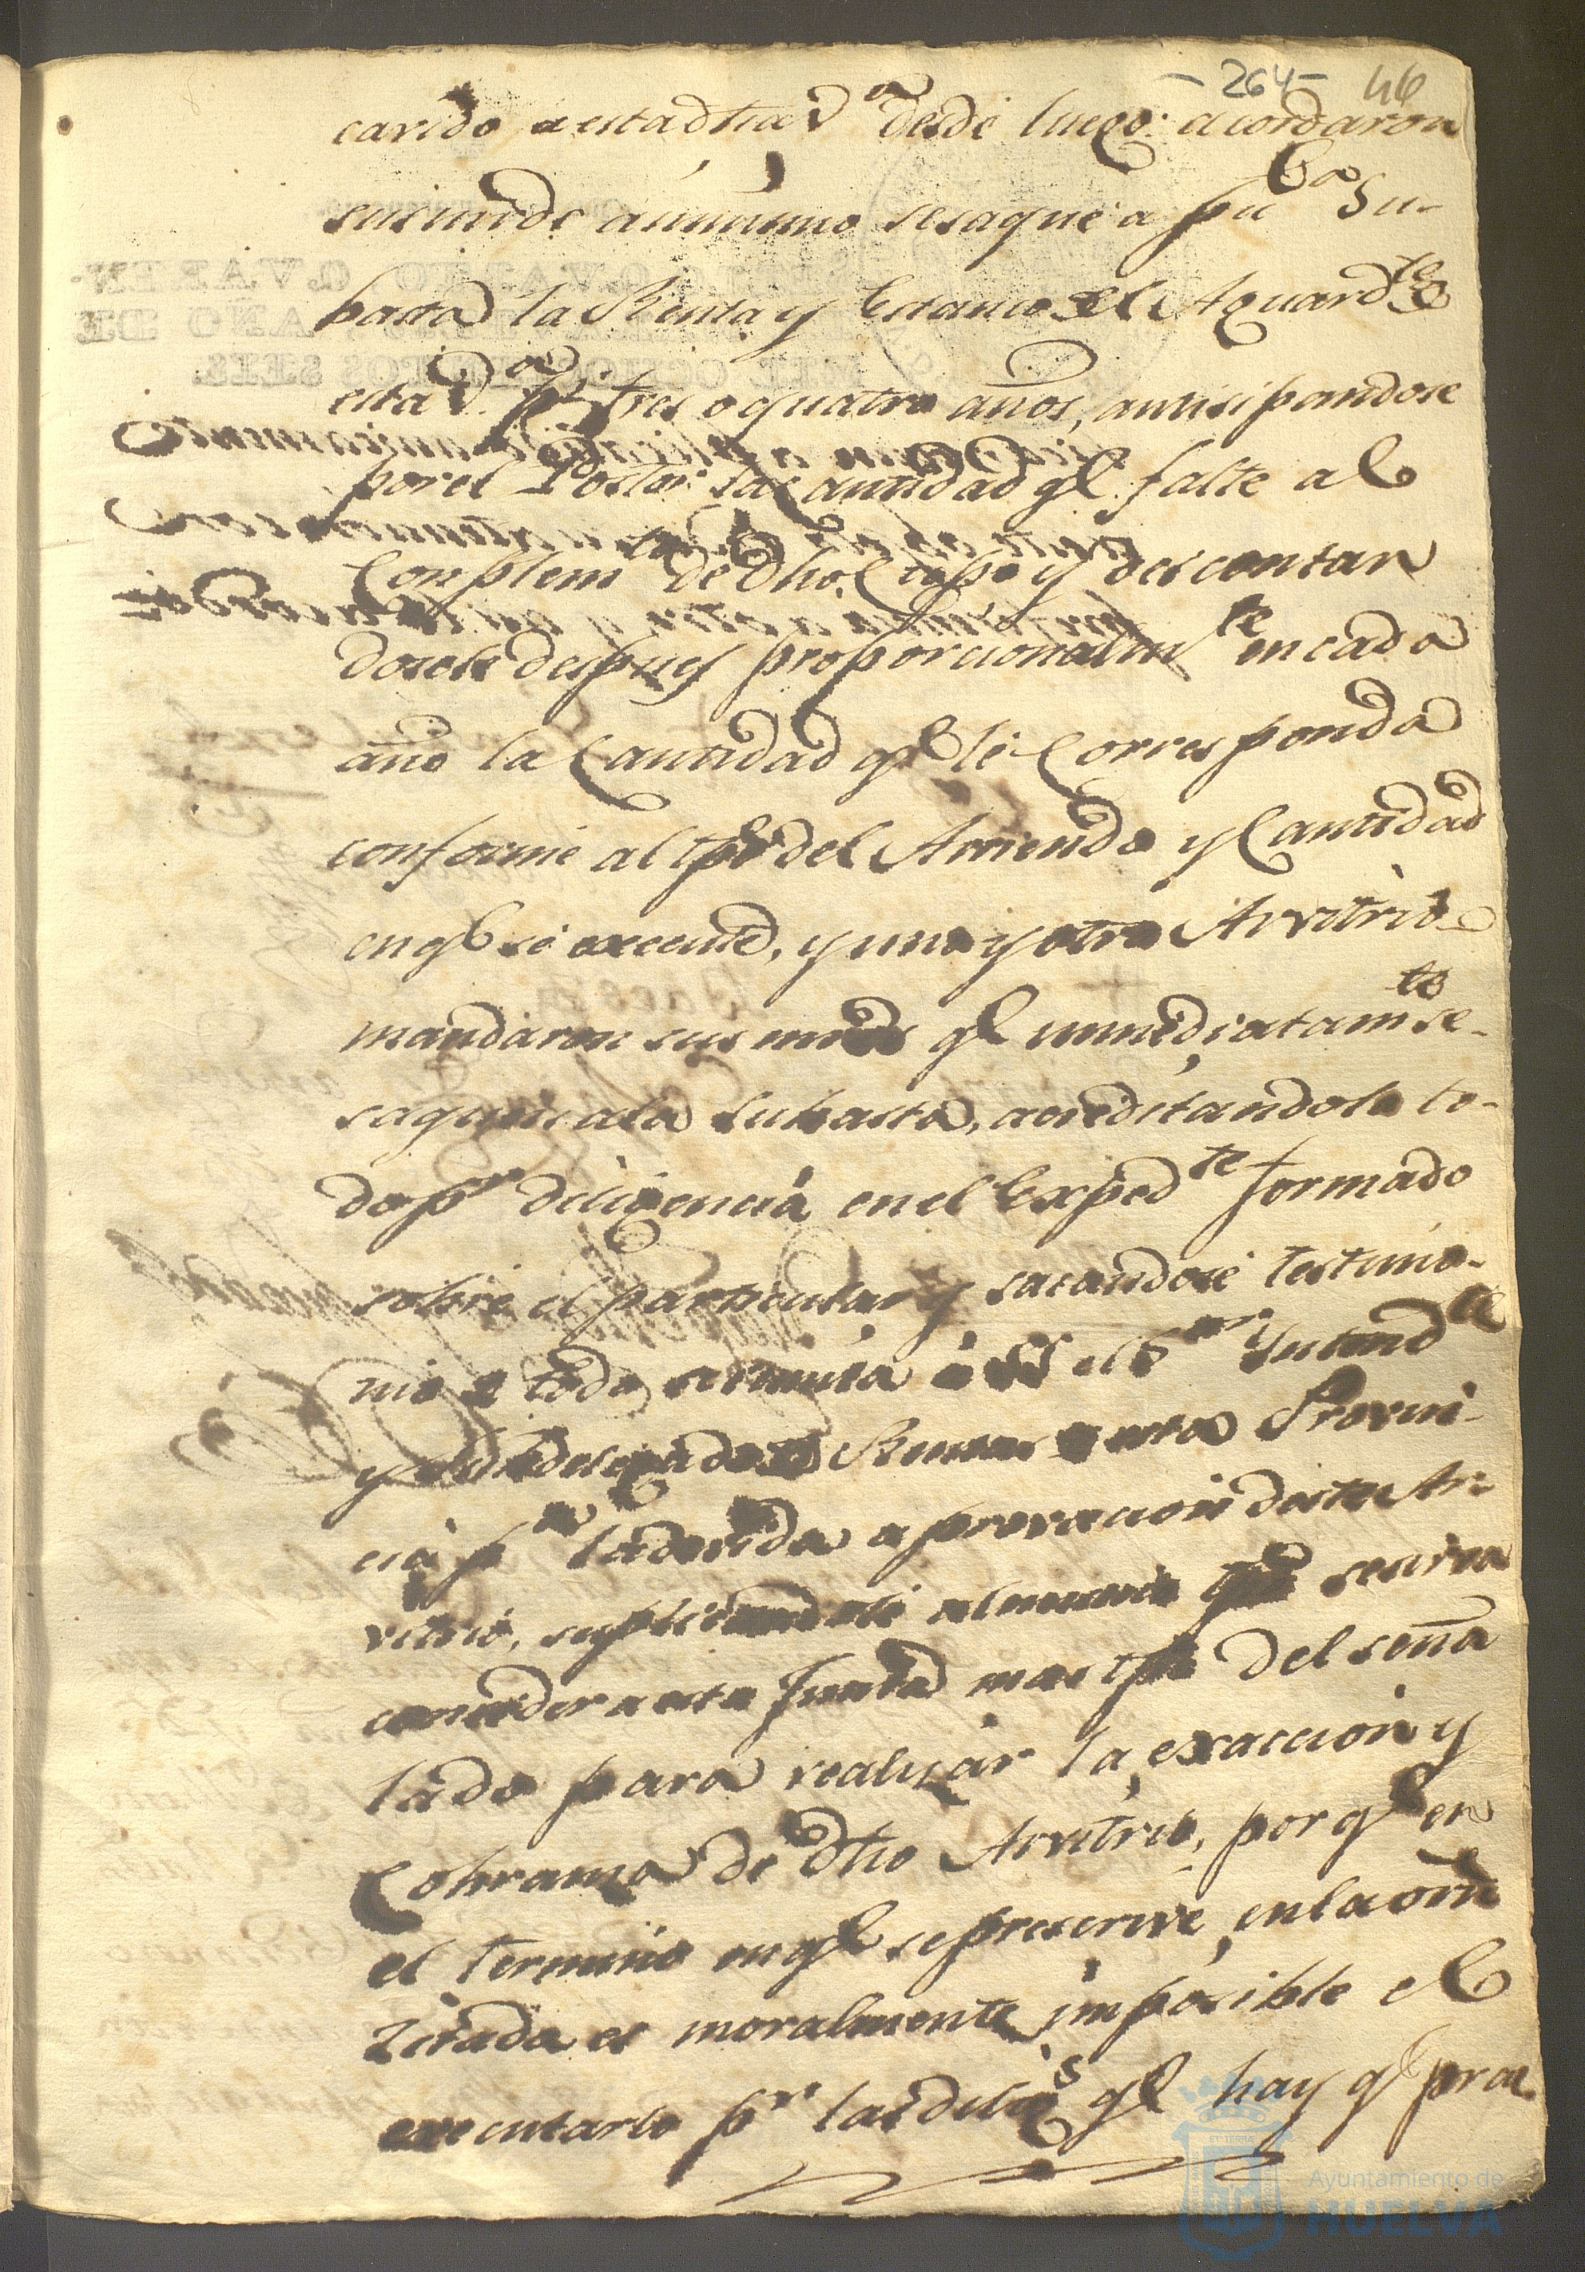 -264- 46
carido a esta dha V.ª desde luego: acordaron
sus mrds asimismo se saque a pu.ca Su-
basta la Renta y Estanco del Aguard.te de
esta V.ª p.r tres o quatro años, antisipandose
por el Postor la Cantidad q.e falte al
Conplem.to de dho Cupo y descontan
dosele despues proporcionalm.te en cada
año la Cantidad q.e le Corresponda
conforme al tpo del Arriendo y Cantidad
en q.e se execute, y uno y otro Arvitrio
mandaron sus mrds q.e inmediatam.te se
saquen a la subasta, acreditandolo to-
do p.r diligencia en el Exped.te formado
sobre el particular y sacandose testimo-
nio de todo se remita à el S.or Intend.te
y Subdelegado de Rentas de esta Provin-
cia p.a la devida aprovacion deste Ar-
vitrio, suplicandole al mismo tpo se sirva
conceder a esta Junta mas tpo del seña
lado para realizar la exaccion y
Cobranza de dho Arvitrio, por q.e en
el termino en q.e se prescrive en la orn
Zitada es moralmente imposible el
executarlo p.r las dilig.s q.e hay q.e prac
Ayuntamiento de
HUELVA